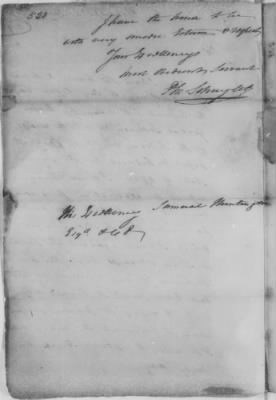 520
I have the honor to be
with very sincere Esteem & respect
Your Excellency's
most obedient Servant
Ph: Schuyler
His Excellency Samuel Huntington
Esqr &c &c